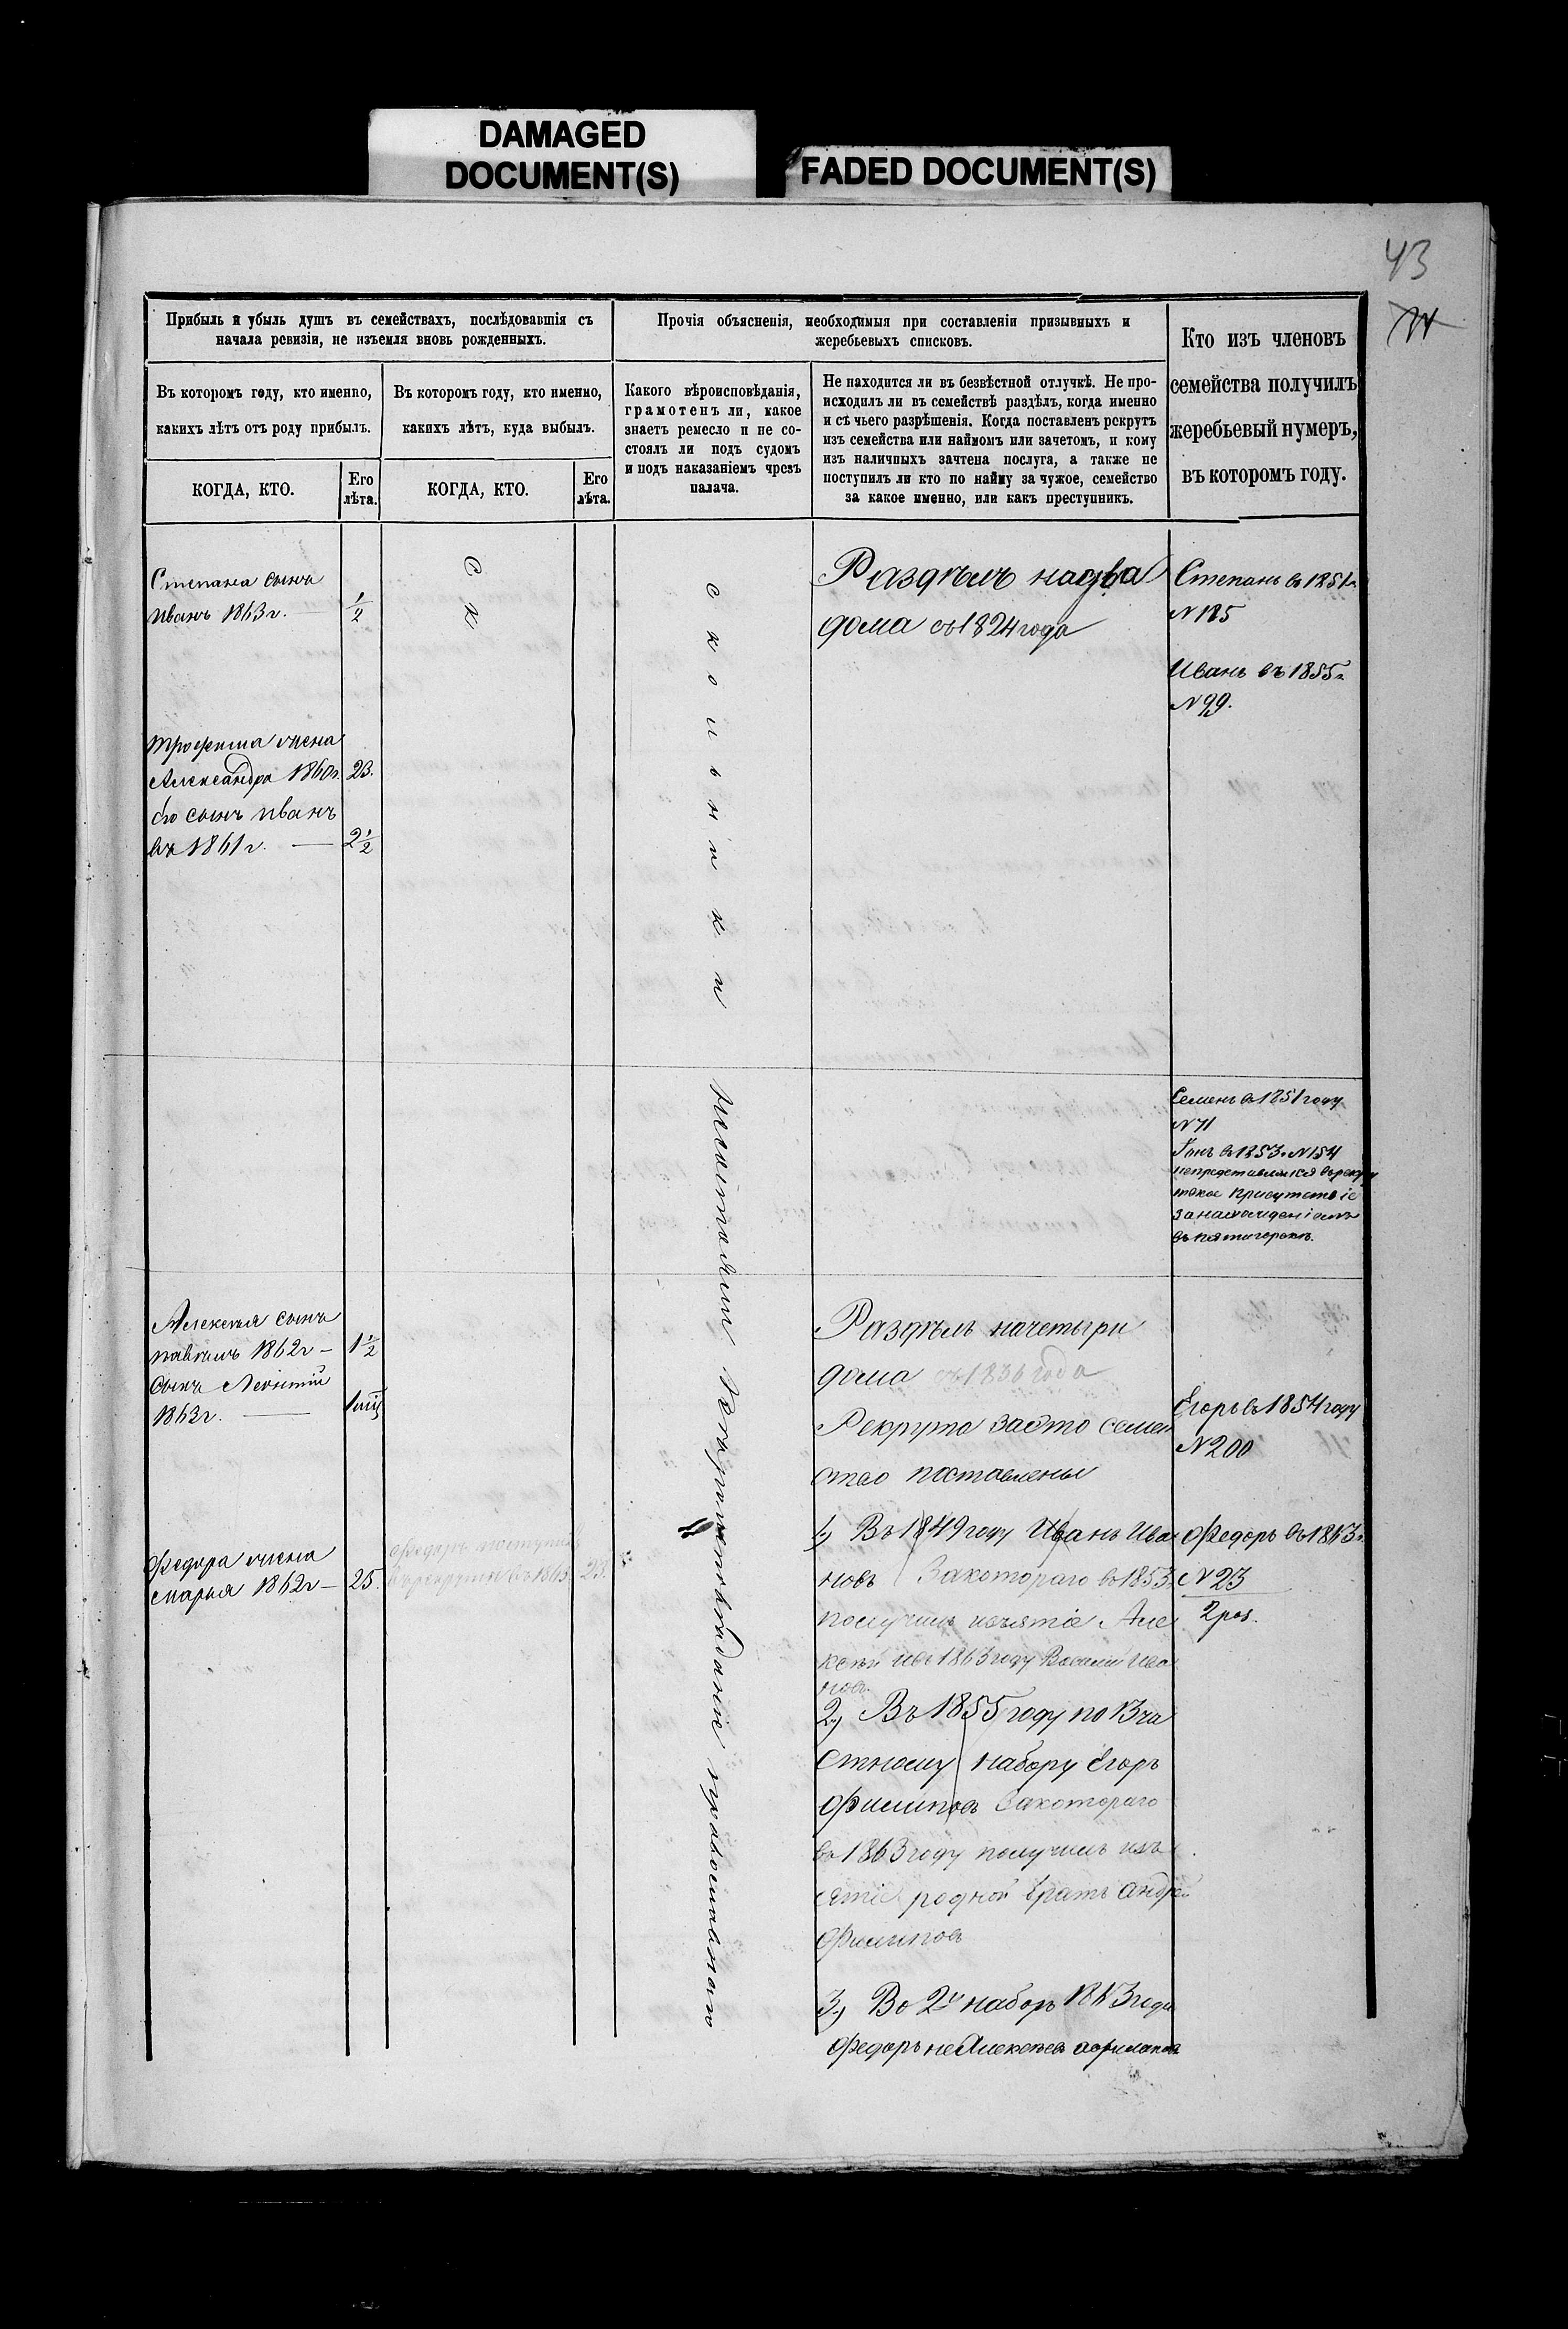 DAMAGED
DOCUMENT(S)
FADED DOCUMENT(S)
43
Прибыль и убыль душъ въ семействахъ, послѣдовавшія съ
начала ревизіи, не изъемля вновь рожденныхъ.
Прочія объясненія, необходимыя при составленіи призывныхъ и
жеребьевыхъ списковъ.
Кто изъ членовъ
семейства получилъ
жеребьевый нумеръ,
въ которомъ году.
Въ которомъ году, кто именно,
какихъ лѣтъ отъ роду прибылъ.
Въ которомъ году, кто именно,
какихъ лѣтъ, куда выбылъ.
Какого вѣроисповѣданія,
грамотенъ ли, какое
знаетъ ремесло и не со-
стоялъ ли подъ судомъ
и подъ наказаніемъ чрезъ
палача.
Не находится ли въ безвѣстной отлучкѣ. Не про-
исходилъ ли въ семействѣ раздѣлъ, когда именно
и съ чьего разрѣшенія. Когда поставленъ рекрутъ
изъ семейства или наймомъ или зачетомъ, и кому
изъ наличныхъ зачтена послуга, а также не
поступилъ ли кто по найму за чужое, семейство
за какое именно, или какъ преступникъ.
КОГДА, КТО.
Его
лѣта.
КОГДА, КТО.
Его
лѣта.
Степана сынъ
Иванъ 1863г. — ½
Трофима жена
Александра 1860г. 23.
Его сынъ Иванъ
въ 1861г. — 2½
Раздѣлъ на два
дома съ 1824 года
Степанъ въ 1851г.
N 185
Иванъ въ 1855г.
N 99.
Семенъ въ 1851 году
N 71
въ 1853г. N 154
присутствіе
за нахожденіемъ
въ Пятигорскѣ.
Алексѣя сынъ
1862г — 1½
Сынъ Леонтій
1863г. —
Федора жена
Марья 1862г — 25.
Федоръ поступилъ
въ рекруты въ 1863 23.
православнаго
Раздѣлъ на четыри
дома съ 1836 года
Рекрута за это семей
ство поставлены
1) Въ 1849 году Иванъ Ива
новъ За котораго въ 1853г.
получилъ изъятіе Але
ксѣй и въ 1863 году Василій Ива
новъ.
2) Въ 1855 году по 13 ча
стному набору Егоръ
Филиповъ За котораго
въ 1863 году получилъ изъ
ятіе родной братъ Андрей
Филиповъ
3) Во 2й наборъ 1863 года
Федоръ
Егоръ въ 1854 году
N 200
Федоръ въ 1863г.
N 23
2 раз.